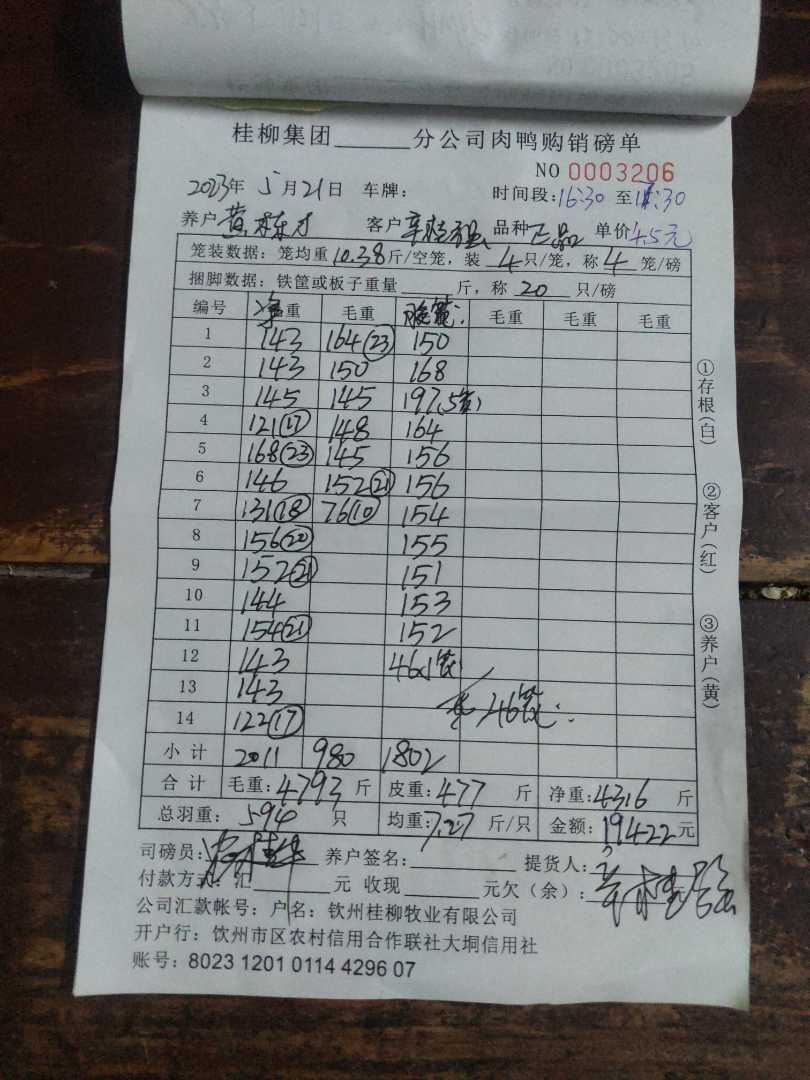 桂柳集团______分公司肉鸭购销磅单
NO 0003206
2023年 5月21日 车牌: 时间段:16:30 至17:30
养户 黄栋才 客户 品种 正品 单价4.5元
笼装数据: 笼均重 10.38 斤/空笼, 装 4 只/笼, 称 4 笼/磅
捆脚数据: 铁筐或板子重量______斤, 称 20 只/磅
编号 净重 毛重 毛重 毛重 毛重
1 143 164(23) 150
2 143 150 168
3 145 145 197(5笼)
4 121(17) 148 164
5 168(23) 145 156
6 146 152(21) 156
7 131(18) 76(10) 154
8 156(20) 155
9 152(21) 151
10 144 153
11 154(21) 152
12 143 46(1笼)
13 143 46笼
14 122(17)
小计 2011 980 1802
合计 毛重:4793 斤 皮重:477 斤 净重:4316 斤
总羽重: 594 只 均重:7.27 斤/只 金额:19422元
司磅员: 养户签名: 提货人:
付款方式: 汇______元 收现______元欠(余):______元
公司汇款帐号: 户名: 钦州桂柳牧业有限公司
开户行: 钦州市区农村信用合作联社大垌信用社
账号: 8023 1201 0114 4296 07
①存根(白)
②客户(红)
③养户(黄)